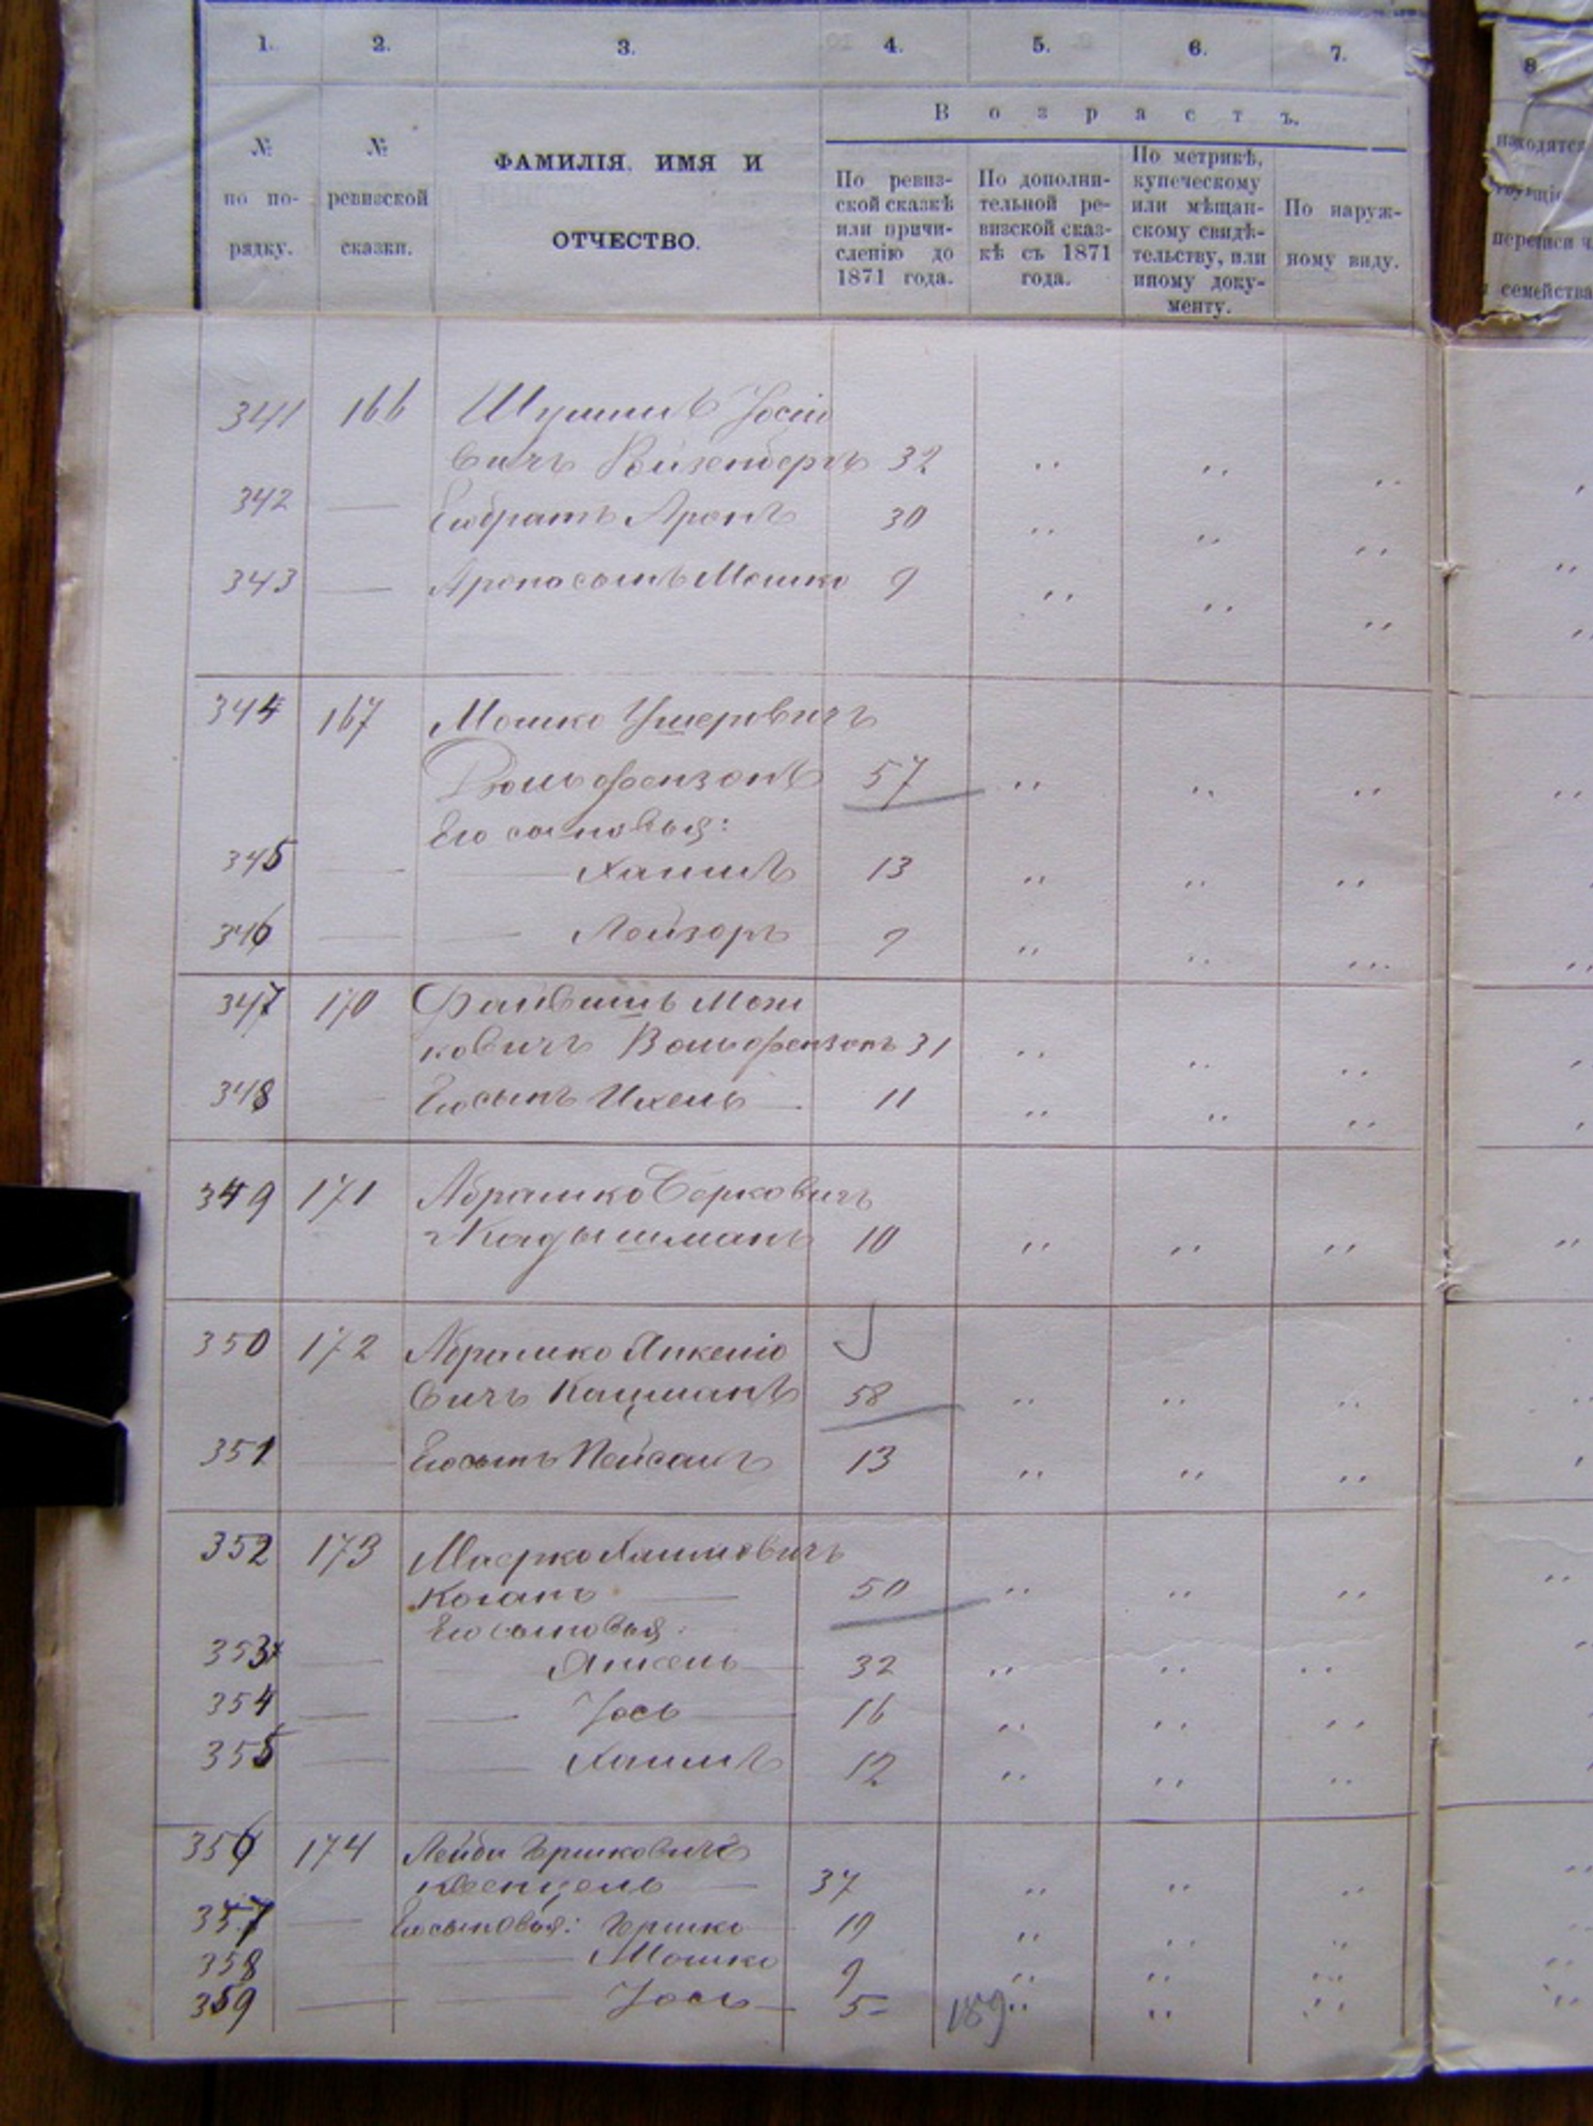 1. 2. 3. 4. 5. 6. 7. 8.
№ по по-рядку.
№ ревизской сказки.
ФАМИЛІЯ, ИМЯ И
ОТЧЕСТВО.
В о з р а с т ъ.
По ревиз-
ской сказкѣ
или причи-
сленію до
1871 года.
По дополни-
тельной ре-
визской сказ-
кѣ съ 1871
года.
По метрикѣ,
купеческому
или мѣщан-
скому свидѣ-
тельству, или
иному доку-
менту.
По наруж-
ному виду.
находятся
переписи
семейства
341 166 Іосіо
вичъ Вайзенбергъ 32
342 — Его братъ Аронъ 30
343 — Арона сынъ Мошко 9
344 167 Мошко Ушеровичъ
Вольфензонъ 57
Его сыновья:
345 — — Хаимъ 13
346 — — Лейзоръ 9
347 170 Файвишъ Мош
ковичъ Вольфензонъ 31
348 — Его сынъ Ихель — 11
349 171 Абрамко Берковичъ
Кадышманъ 10
350 172 Абрамко Янкеліо
вичъ Кацманъ 58
351 — Его сынъ Пейсахъ 13
352 173 Маерко Хаимовичъ
Коганъ — 50
Его сыновья:
353 — Янкель — 32
354 — — Іось — 16
355 — — Хаимъ 12
356 174 Лейба Гершковичъ
— 37
357 — Его сыновья: Гершко 19
358 — — Мошко 9
359 — — Іось — 5
189